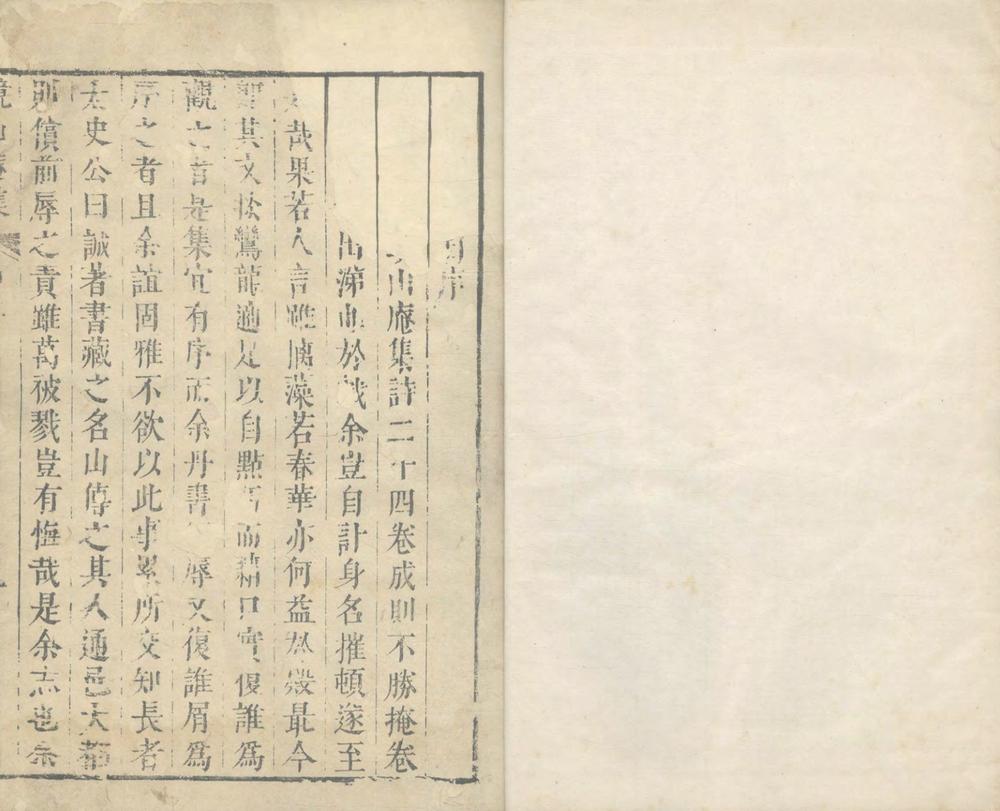 自序
山庵集詩二十四卷成則不勝掩卷
出涕曲於哉余豈自計身名摧頓遂至
哉果若人言雖摛藻若春華亦何益於殿最今
其文於鸞龍適足以自點而藉口實復誰爲
觀之者是集宜有序而余丹書辱又復誰屑爲
序之者且余誼固雅不欲以此事累所交知長者
太史公曰誠著書藏之名山傳之其人通邑大都
則償前辱之責雖萬被戮豈有悔哉是余志也余
山庵集